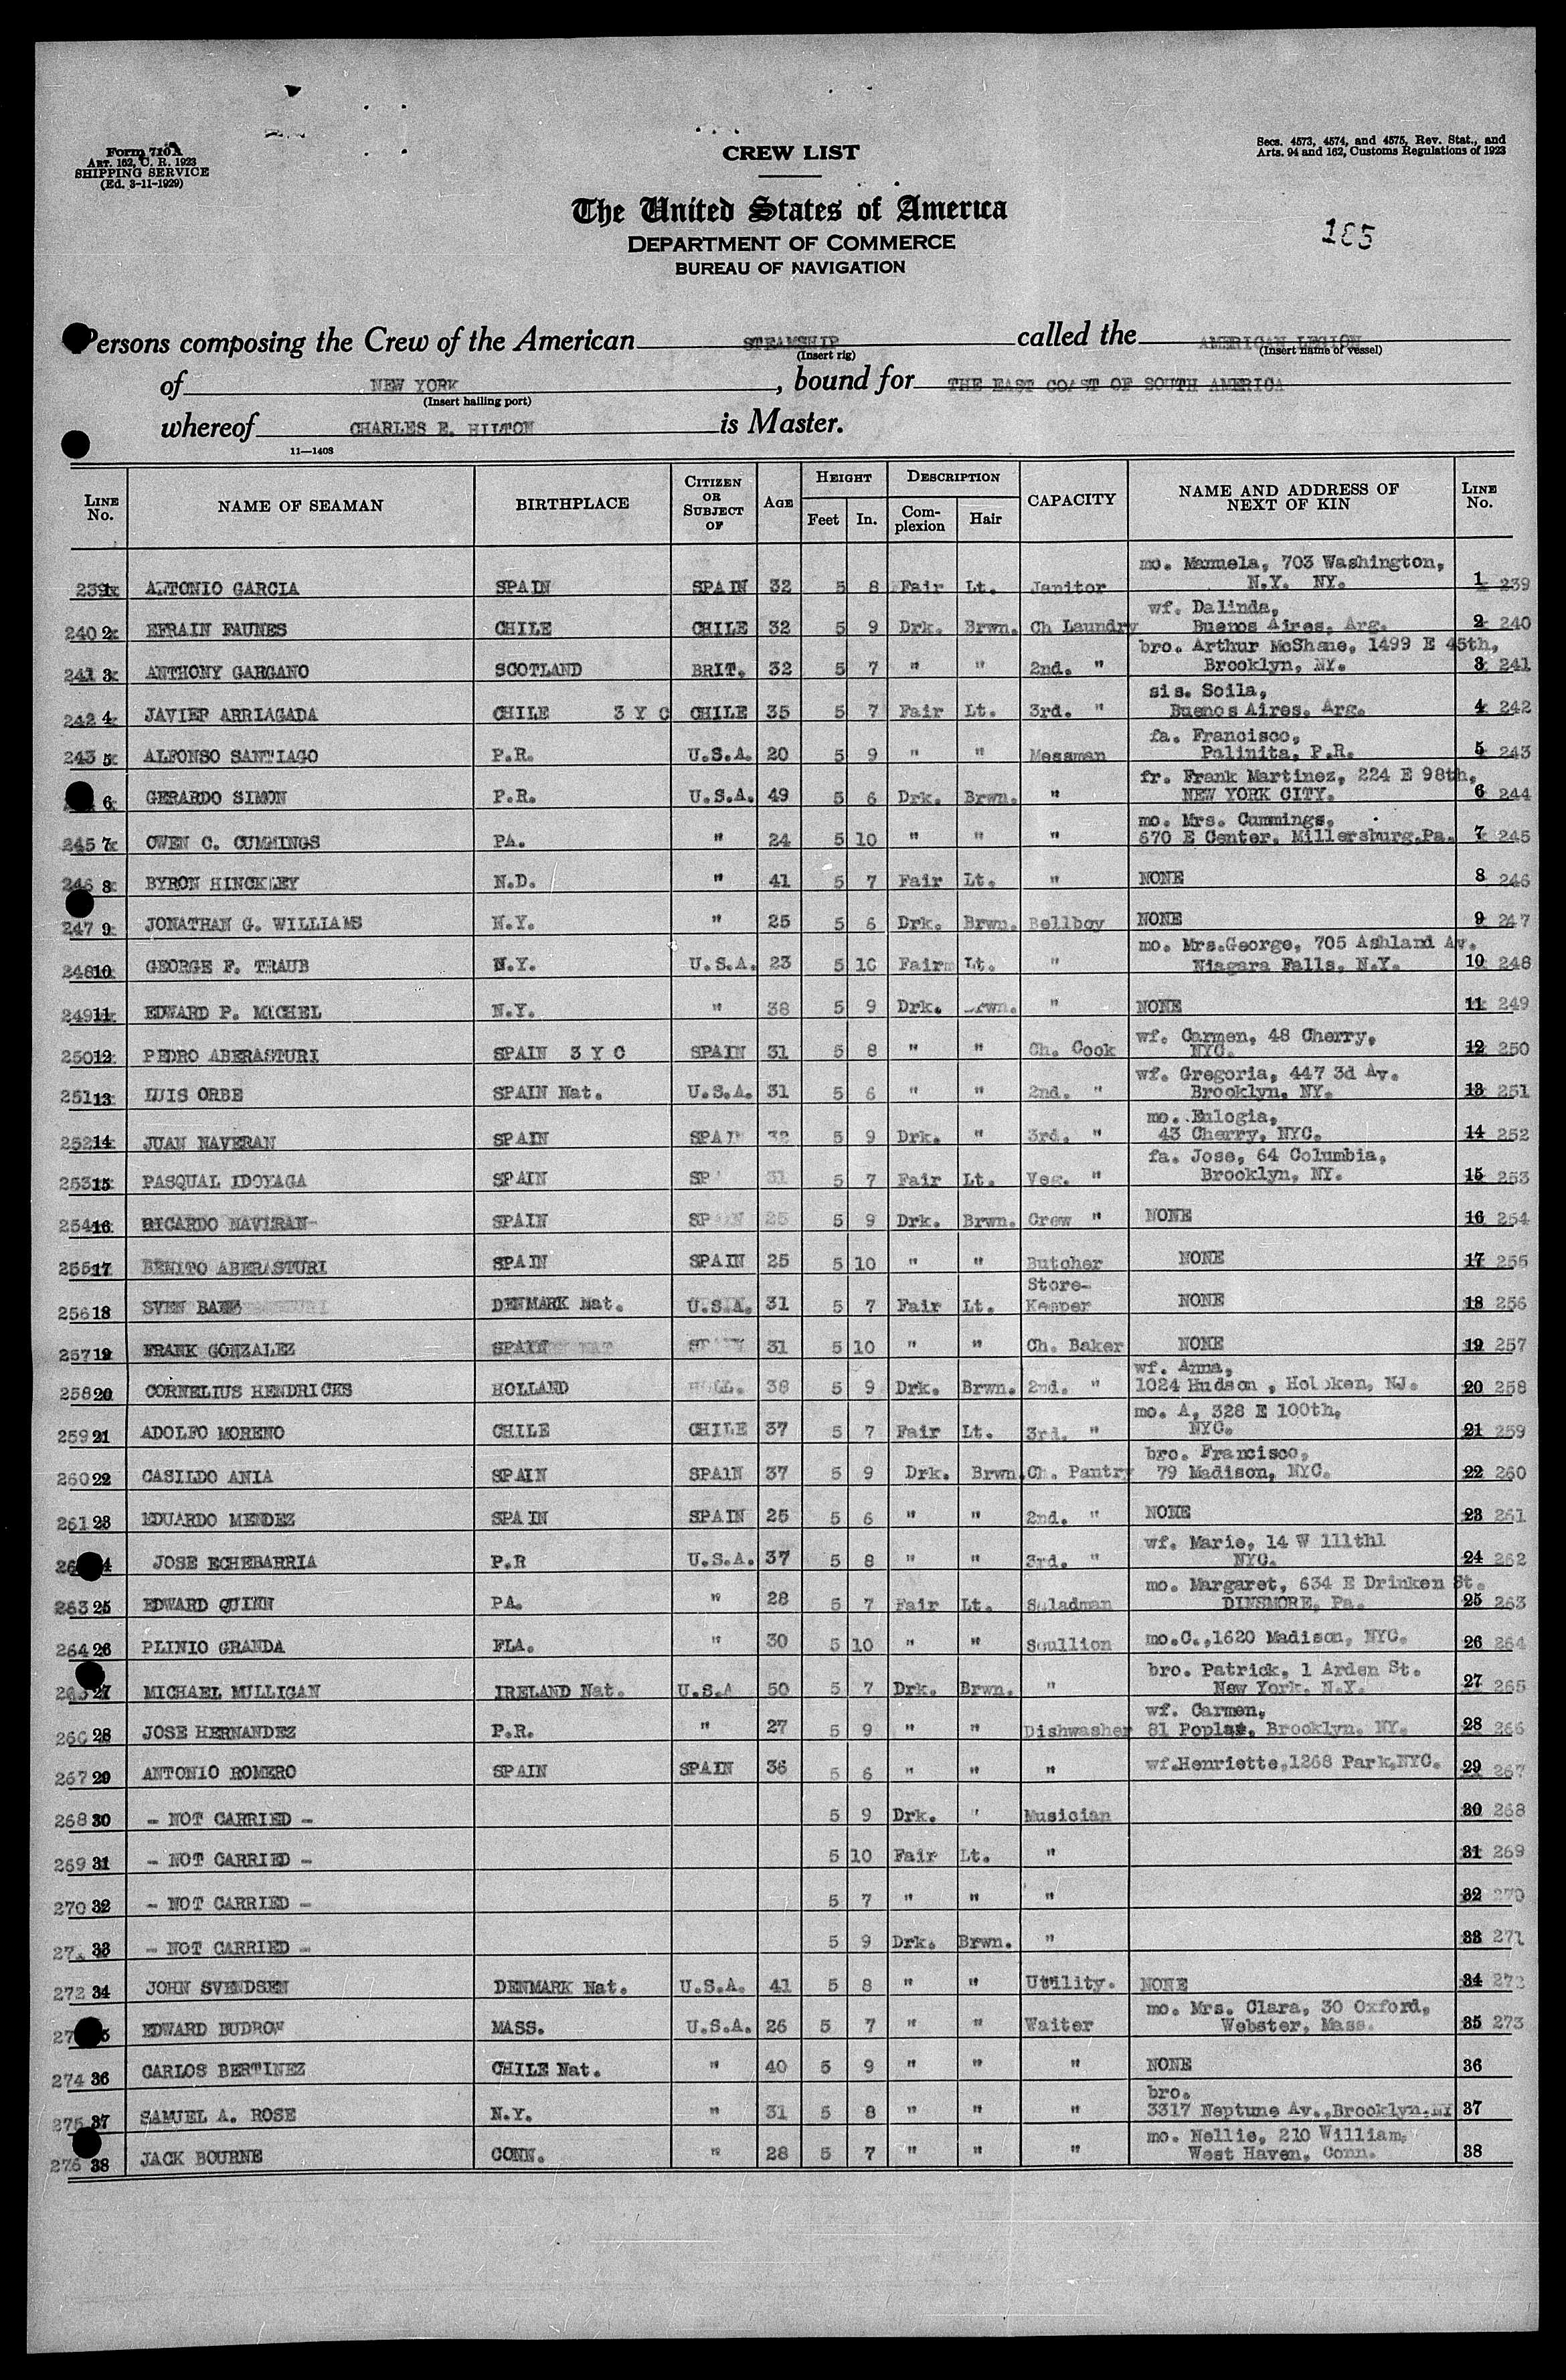 Form 710A
ART. 162, C. R. 1923
SHIPPING SERVICE
(Ed. 3-11-1929)
CREW LIST
Secs. 4573, 4574, and 4575, Rev. Stat., and
Arts. 94 and 162, Customs Regulations of 1923
The United States of America
DEPARTMENT OF COMMERCE
BUREAU OF NAVIGATION
185
Persons composing the Crew of the American STEAMSHIP called the AMERICAN LEGION
(Insert rig) (Insert name of vessel)
of NEW YORK, bound for THE EAST COAST OF SOUTH AMERICA
(Insert hailing port)
whereof CHARLES E. HILTON is Master.
11—1408
LINE No. NAME OF SEAMAN BIRTHPLACE CITIZEN OR SUBJECT OF AGE HEIGHT Feet In. DESCRIPTION Complexion Hair CAPACITY NAME AND ADDRESS OF NEXT OF KIN LINE No.
mo. Manuela, 703 Washington,
239 1 ANTONIO GARCIA SPAIN SPAIN 32 5 8 Fair Lt. Janitor N.Y. NY. 1 239
wf. Dalinda,
240 2 EFRAIN FAUNES CHILE CHILE 32 5 9 Drk. Brwn. Ch Laundry Buenos Aires, Arg. 2 240
bro. Arthur McShane, 1499 E 45th,
241 3 ANTHONY GARGANO SCOTLAND BRIT. 32 5 7 " " 2nd. " Brooklyn, NY. 3 241
sis. Soila,
242 4 JAVIER ARRIAGADA CHILE 3 Y C CHILE 35 5 7 Fair Lt. 3rd. " Buenos Aires, Arg. 4 242
fa. Francisco,
243 5 ALFONSO SANTIAGO P.R. U.S.A. 20 5 9 " " Messman Palinita, P.R. 5 243
fr. Frank Martinez, 224 E 98th,
6 GERARDO SIMON P.R. U.S.A. 49 5 6 Drk. Brwn. " NEW YORK CITY. 6 244
mo. Mrs. Cummings,
245 7 OWEN C. CUMMINGS PA. " 24 5 10 " " " 670 E Center, Millersburg,Pa. 7 245
246 8 BYRON HINCKLEY N.D. " 41 5 7 Fair Lt. " NONE 8 246
247 9 JONATHAN G. WILLIAMS N.Y. " 25 5 6 Drk. Brwn. Bellboy NONE 9 247
mo. Mrs.George, 705 Ashland Av.
248 10 GEORGE F. TRAUB N.Y. U.S.A. 23 5 10 Fair Lt. " Niagara Falls, N.Y. 10 248
249 11 EDWARD P. MICHEL N.Y. " 38 5 9 Drk. Brwn. " NONE 11 249
wf. Carmen, 48 Cherry,
250 12 PEDRO ABERASTURI SPAIN 3 Y C SPAIN 31 5 8 " " Ch. Cook NYC. 12 250
wf. Gregoria, 447 3d Av.
251 13 LUIS ORBE SPAIN Nat. U.S.A. 31 5 6 " " 2nd. " Brooklyn, NY. 13 251
mo. Eulogia,
252 14 JUAN NAVERAN SPAIN SPAIN 32 5 9 Drk. " 3rd. " 43 Cherry, NYC. 14 252
fa. Jose, 64 Columbia,
253 15 PASQUAL IDOYAGA SPAIN SP 31 5 7 Fair Lt. Veg. " Brooklyn, NY. 15 253
254 16 RICARDO NAVERAN SPAIN SPAIN 25 5 9 Drk. Brwn. Crew " NONE 16 254
255 17 BENITO ABERASTURI SPAIN SPAIN 25 5 10 " " Butcher NONE 17 255
Store-
256 18 SVEN DENMARK Nat. U.S.A. 31 5 7 Fair Lt. Keeper NONE 18 256
257 19 FRANK GONZALEZ SPAIN SPAIN 31 5 10 " " Ch. Baker NONE 19 257
wf. Anna,
258 20 CORNELIUS HENDRICKS HOLLAND HOLL. 38 5 9 Drk. Brwn. 2nd. " 1024 Hudson , Hoboken, NJ. 20 258
mo. A, 328 E 100th,
259 21 ADOLFO MORENO CHILE CHILE 37 5 7 Fair Lt. 3rd. " NYC. 21 259
bro. Francisco,
260 22 CASILDO ANIA SPAIN SPAIN 37 5 9 Drk. Brwn. Ch. Pantry 79 Madison, NYC. 22 260
261 23 EDUARDO MENDEZ SPAIN SPAIN 25 5 6 " " 2nd. " NONE 23 261
wf. Marie, 14 W 111thl
JOSE ECHEBARRIA P.R U.S.A. 37 5 8 " " 3rd. " NYC. 24 262
mo. Margaret, 634 E Drinken St.
263 25 EDWARD QUINN PA. " 28 5 7 Fair Lt. Saladman DINSMORE, Pa. 25 263
264 26 PLINIO GRANDA FLA. " 30 5 10 " " Scullion mo.C.,1620 Madison, NYC. 26 264
bro. Patrick, 1 Arden St.
265 27 MICHAEL MULLIGAN IRELAND Nat. U.S.A 50 5 7 Drk. Brwn. " New York, N.Y. 27 265
wf. Carmen,
266 28 JOSE HERNANDEZ P.R. " 27 5 9 " " Dishwasher 81 Poplar, Brooklyn, NY. 28 266
267 29 ANTONIO ROMERO SPAIN SPAIN 36 5 6 " " " wf.Henriette,1268 Park,NYC. 29 267
268 30 - NOT CARRIED - 5 9 Drk. " Musician 30 268
269 31 - NOT CARRIED - 5 10 Fair Lt. " 31 269
270 32 - NOT CARRIED - 5 7 " " " 32 270
33 - NOT CARRIED - 5 9 Drk. Brwn. " 33 271
272 34 JOHN SVENDSEN DENMARK Nat. U.S.A. 41 5 8 " " Utility. NONE 34 272
mo. Mrs. Clara, 30 Oxford,
EDWARD BUDROW MASS. U.S.A. 26 5 7 " " Waiter Webster, Mass. 35 273
274 36 CARLOS BERTINEZ CHILE Nat. " 40 5 9 " " " NONE 36
bro.
275 37 SAMUEL A. ROSE N.Y. " 31 5 8 " " " 3317 Neptune Av.,Brooklyn.NY 37
mo. Nellie, 210 William,
276 38 JACK BOURNE CONN. " 28 5 7 " " " West Haven, Conn. 38